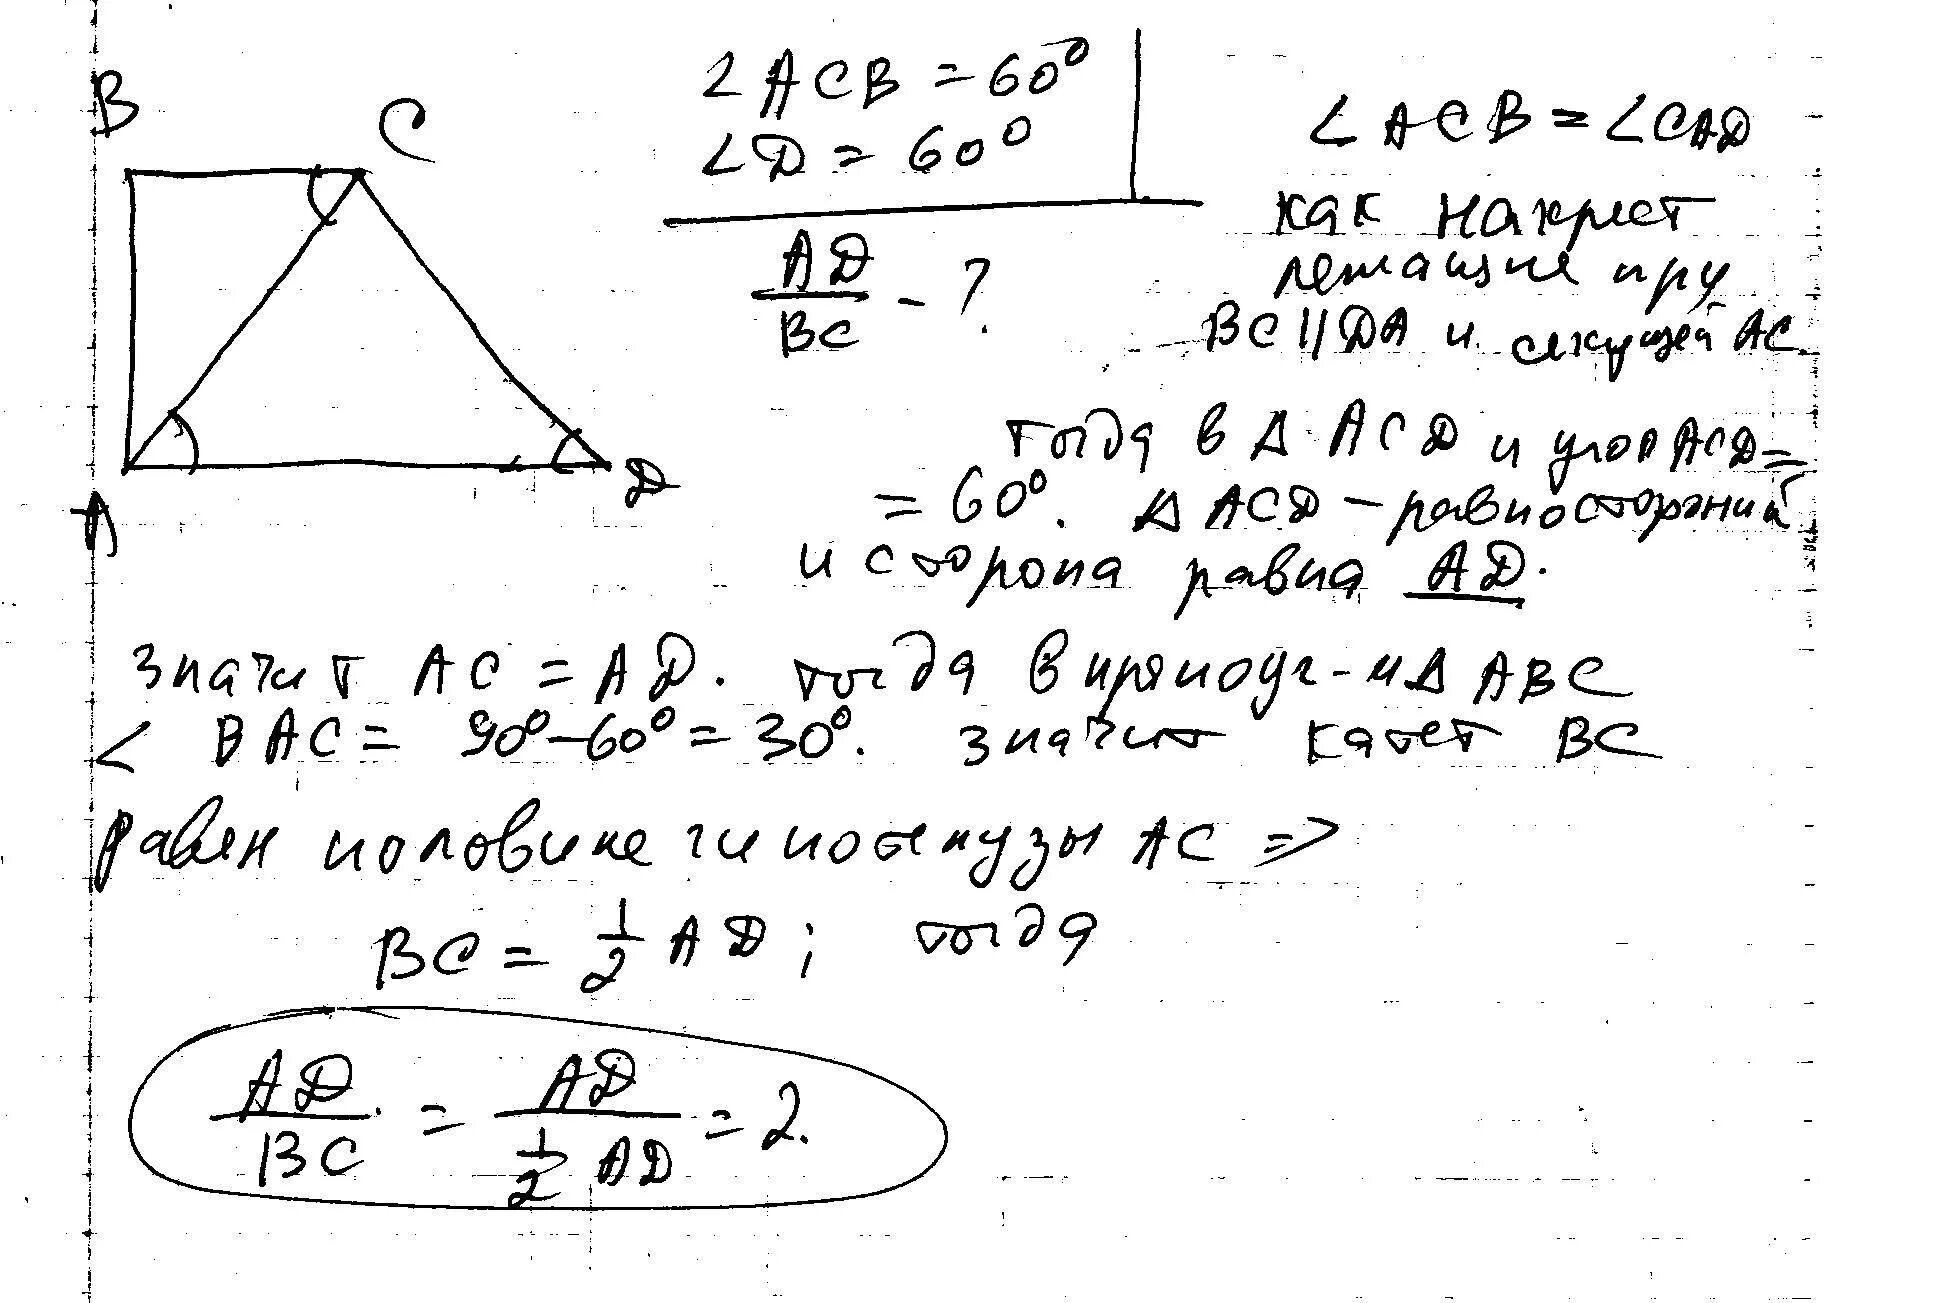 B
C
A
D
∠ACB = 60°
∠D = 60°
AD
BC
- ?
∠ACB = ∠CAD
как накрест
лежащие при
BC || DA и секущей AC
тогда в Δ ACD и угол ACD =
= 60°. Δ ACD — равносторонний
и сторона равна AD.
значит AC = AD. тогда в прямоуг-м Δ ABC
∠ BAC = 90° – 60° = 30°. значит катет BC
равен половине гипотенузы AC =>
BC = 1/2 AD; тогда
AD/BC = AD/(1/2 AD) = 2.